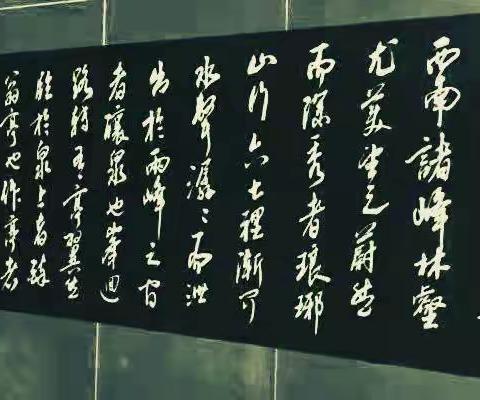 西南諸峰林壑
尤美望之蔚然
而深秀者琅琊
山行六七裡漸聞
水聲潺々而洩
出於兩峰之間
者釀泉也峰迴
路轉有亭翼然
臨於泉上者醉
翁亭也作亭者